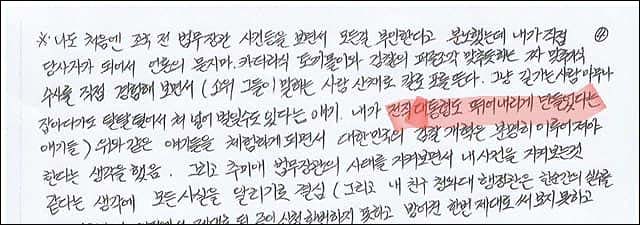 ※. 나도 처음엔 조국 전 법무장관 사건들을 보면서 모든걸 부인한다고 분노했는데 내가 직접
당사자가 되어서 언론의 묻지마, 카더라식 토끼몰이와 검찰의 퍼즐조각 맞추듯하는 짜 맞추기식
수사를 직접 경험해 보면서 (소위 그들이 말하는 사람 산채로 칼로 포를 뜬다. 그냥 길가는사람 아무나
잡아다가도 탈탈 털어서 쳐 넣어 벌일수도 있다는 얘기. 내가 전직 대통령도 뛰어내리게 만들었다는
얘기들) 위와 같은 얘기들을 체험하게 되면서 대한민국의 검찰 개혁은 분명히 이루어져야
한다는 생각을 했음. 그리고 추미애 법무장관의 사태를 지켜보면서 내 사건을 지켜보는것
같다는 생각에 모든사실을 알리기로 결심 (그리고 내 친구 청와대 행정관은 한순간의 실수를
제대로 된 한번하지 못하고 방어권 한번 제대로 써 보지 못하고